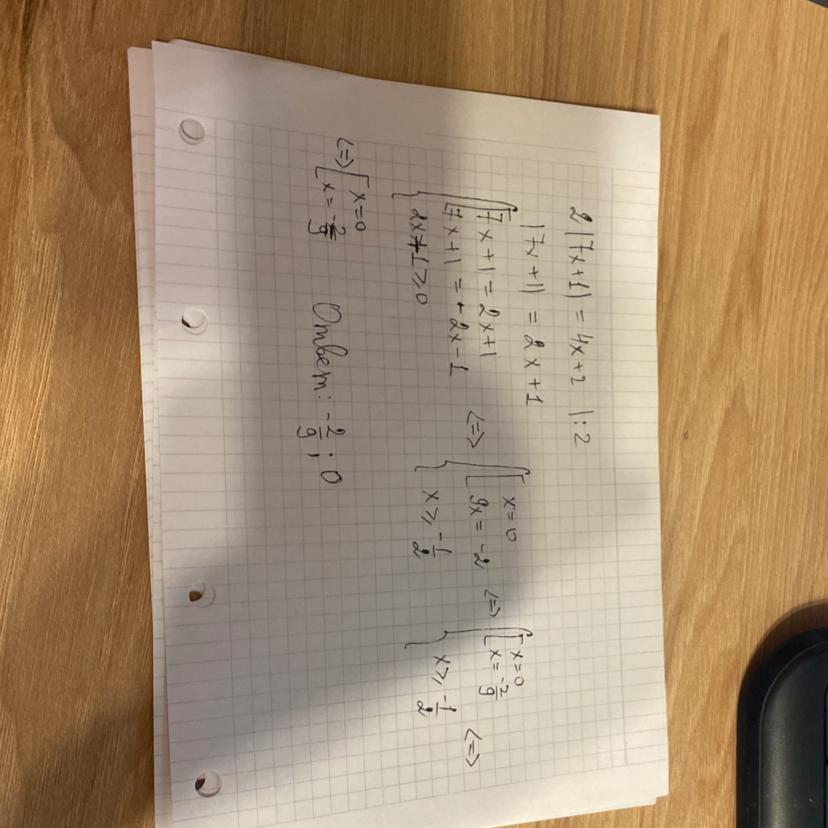 2|7x+1| = 4x+2 |:2
|7x+1| = 2x+1
{ [ 7x+1 = 2x+1
7x+1 = -2x-1
2x+1 ≥ 0
<=> { [ x=0
9x = -2
x ≥ -1/2
<=> { [ x=0
x = -2/9
x ≥ -1/2
<=>
<=> [ x=0
x = -2/9
Ответ: -2/9 ; 0